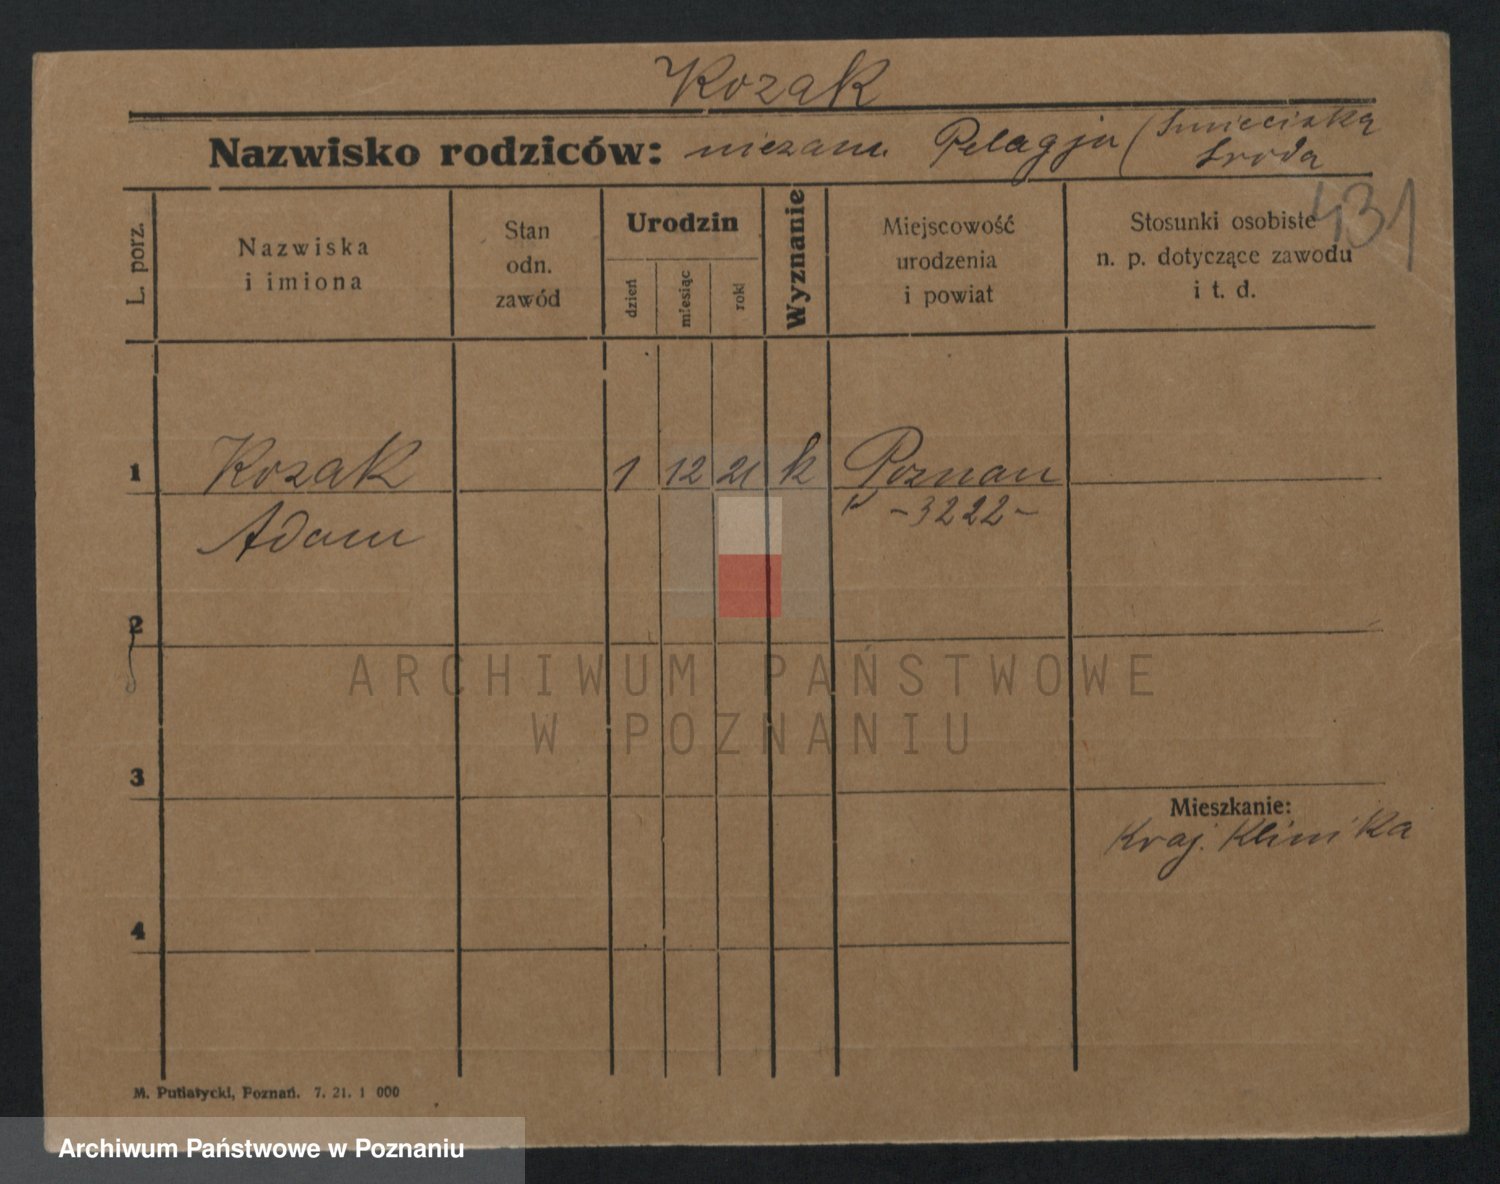 Kozak
Nazwisko rodziców: niezam. Pelagja (
Sroda
431
L. porz.
Nazwiska
i imiona
Stan
odn.
zawód
Urodzin
dzień
miesiąc
rok
Wyznanie
Miejscowość
urodzenia
i powiat
Stosunki osobiste
n. p. dotyczące zawodu
i t. d.
1 Kozak 1 12 21 k Poznan
Adam -3222-
2
ARCHIWUM PAŃSTWOWE
W POZNANIU
3
Mieszkanie:
Kraj. Klinika
4
M. Putiatycki, Poznań. 7. 21. 1 000
Archiwum Państwowe w Poznaniu